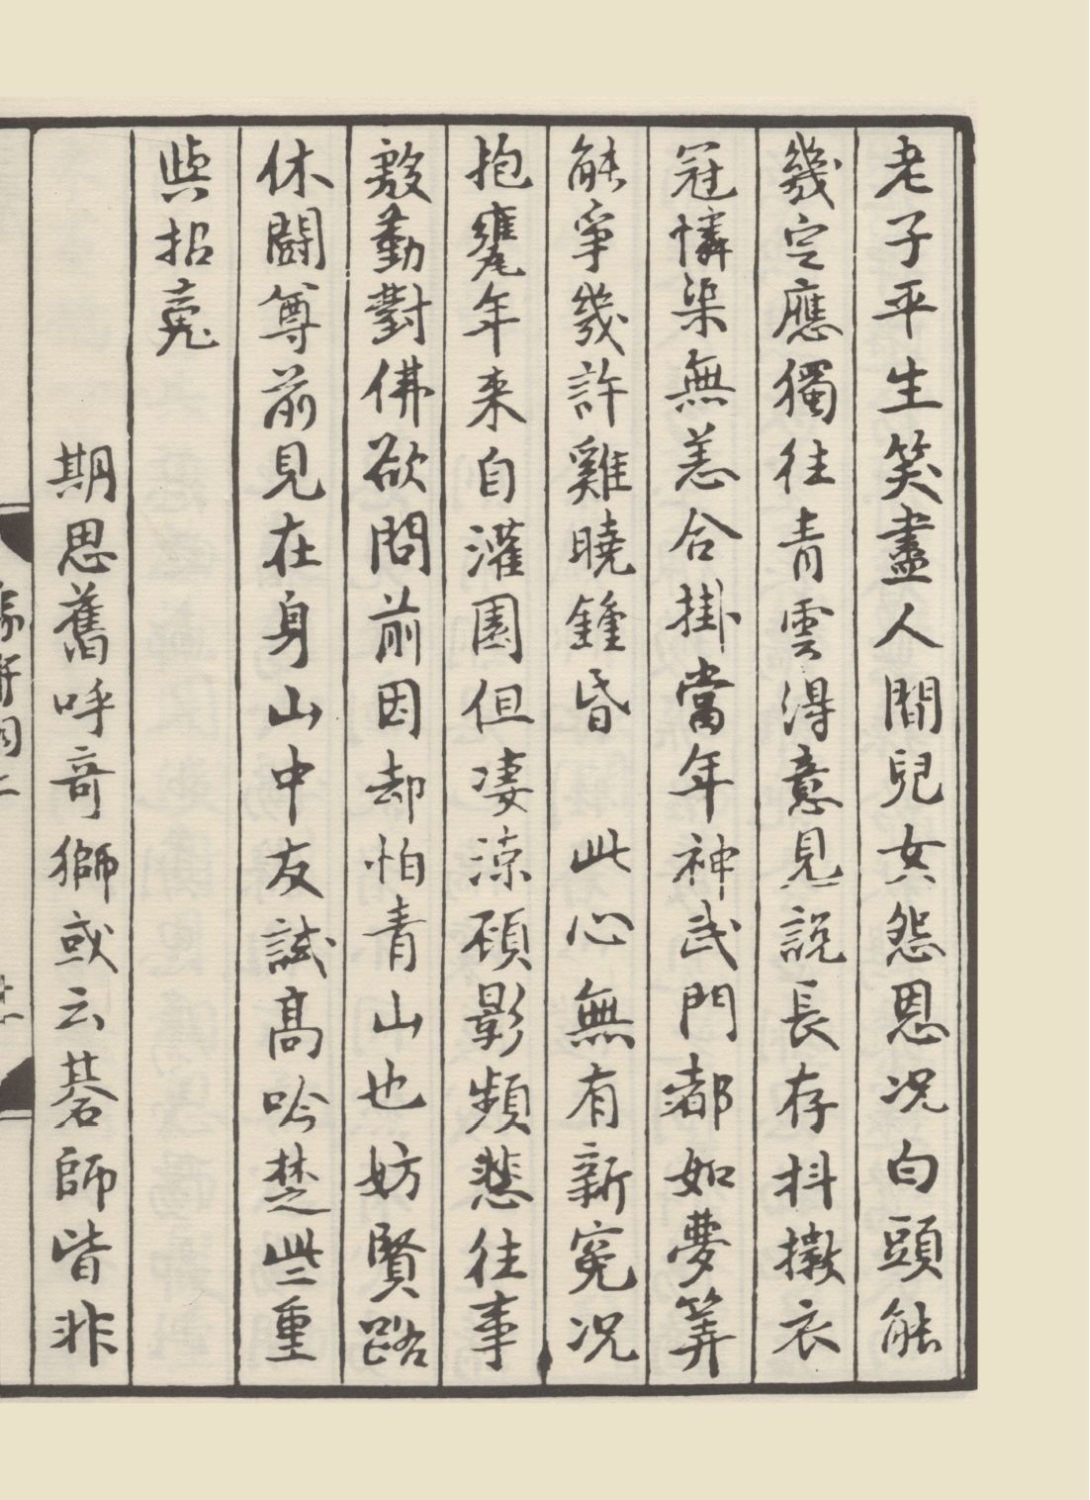 老子平生笑盡人間兒女怨恩况白頭能
幾定應獨往青雲得意見說長存抖擻衣
冠憐渠無恙合掛當年神武門都如夢筭
能爭幾許雞曉鍾昏　此心無有新冤况
抱甕年来自灌園但凄涼顧影頻悲往事
慇懃對佛欲問前因却怕青山也妨賢路
休鬭尊前見在身山中友試髙吟楚些重
與招䰟
期思舊呼竒獅或云碁師皆非